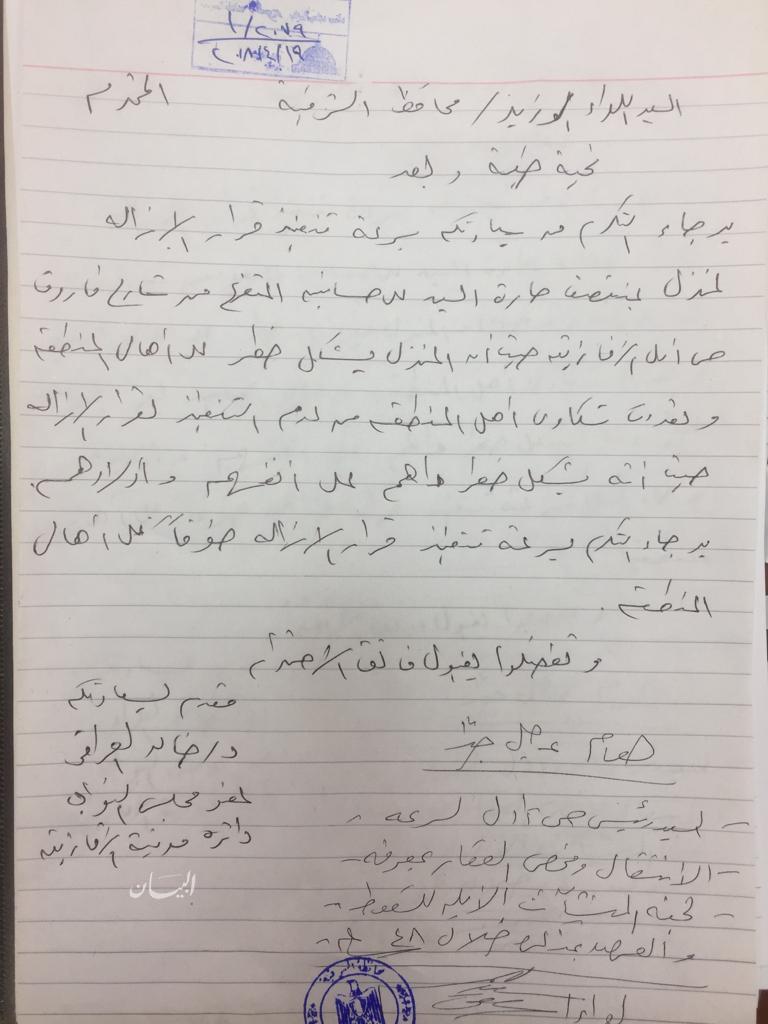 ١/٢٠٧٩
٢٠١٨/٤/١٩
السيد اللواء الوزير / محافظ الشرقية المحترم
تحية طيبة وبعد
برجاء التكرم من سيادتكم بسرعة تنفيذ قرار الإزاله
لمنزل بمنتصف حارة السيد المتفرع من شارع فاروق
حى أول الزقازيق حيث أن المنزل يشكل خطر على أهالى المنطقة
وتعددت شكاوى أهل المنطقه من عدم التنفيذ لقرار الإزاله
حيث أنه يشكل خطرا داهم على أنفسهم وأولادهم.
برجاء التكرم بسرعة تنفيذ قرار الإزاله خوفاً على أهالى
المنطقه.
وتفضلوا بقبول فائق الاحترام
مقدم لسيادتكم
د/ خالد العراقى
عضو مجلس النواب
دائرة مدينة الزقازيق
هام عاجل جدا
- السيد رئيس حى أول لسرعه -
- الانتقال وفحص العقار بمعرفة -
- لجنه المنشآت الآيله للسقوط -
والعرض خلال ٤٨ س -
لواء
البيان